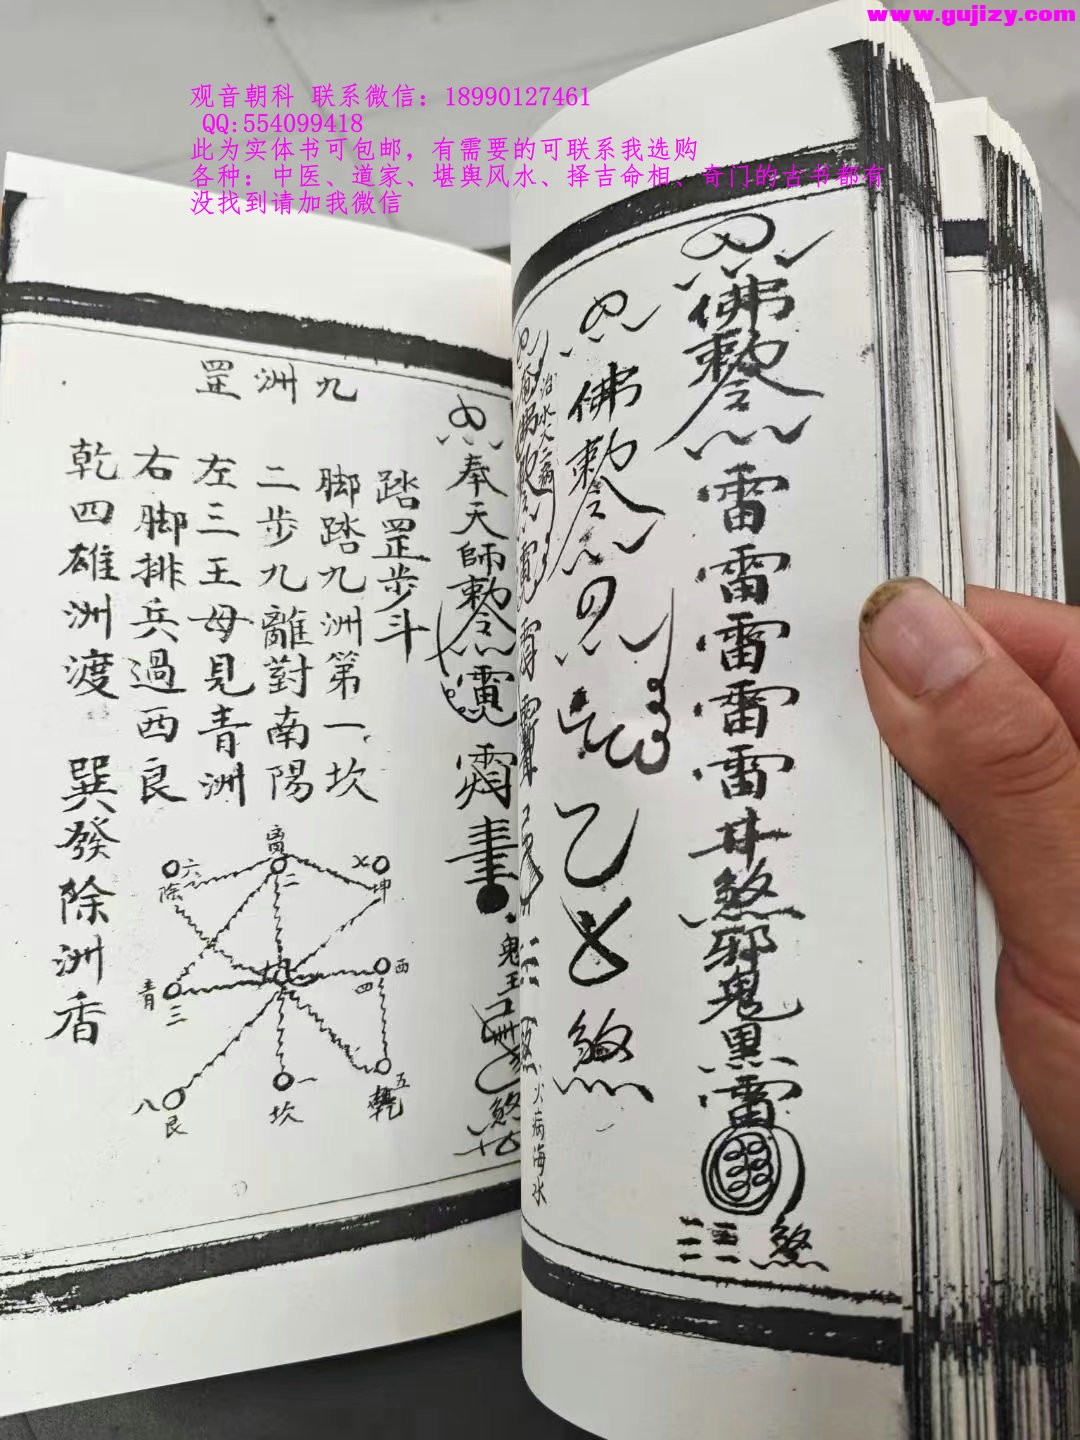 www.gujizy.com
观音朝科 联系微信：18990127461
QQ:554099418
此为实体书可包邮，有需要的可联系我选购
各种：中医、道家、堪舆风水、择吉命相、奇门的古书都有
没找到请加我微信
佛敕令
雷雷雷雷雷井煞邪鬼黑雷
煞
佛敕令
煞
火病海水
奉天師敕令
鬼王
煞
九洲罡
踏罡步斗
脚踏九洲第一坎
二步九離對南陽
左三王母見青洲
右脚排兵過西良
乾四雄洲渡
巽發除洲香
六
除
离
二
坤
青
三
九
西
四
八
艮
一
坎
五
乾